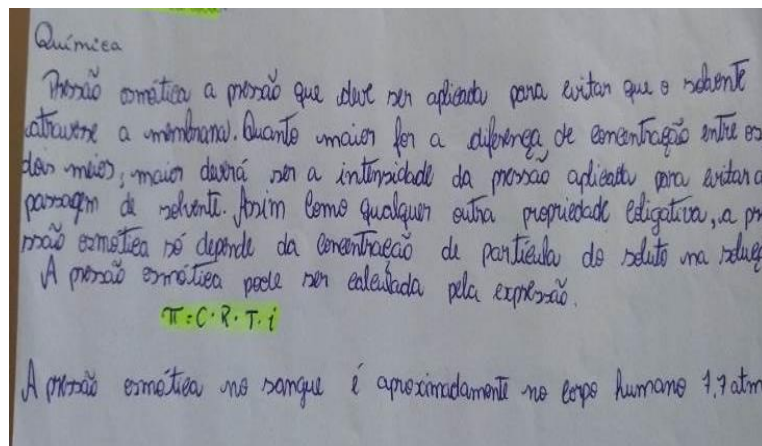 Química
Pressão osmótica a pressão que deve ser aplicada para evitar que o solvente
atravesse a membrana. Quanto maior for a diferença de concentração entre os
dois meios, maior deverá ser a intensidade da pressão aplicada para evitar a
passagem de solvente. Assim como qualquer outra propriedade coligativa, a pr
ssão osmótica só depende da concentração de partícula do soluto na soluç
A pressão osmótica pode ser calculada pela expressão.
π = C · R · T · i
A pressão osmótica no sangue é aproximadamente no corpo humano 7,7 atm